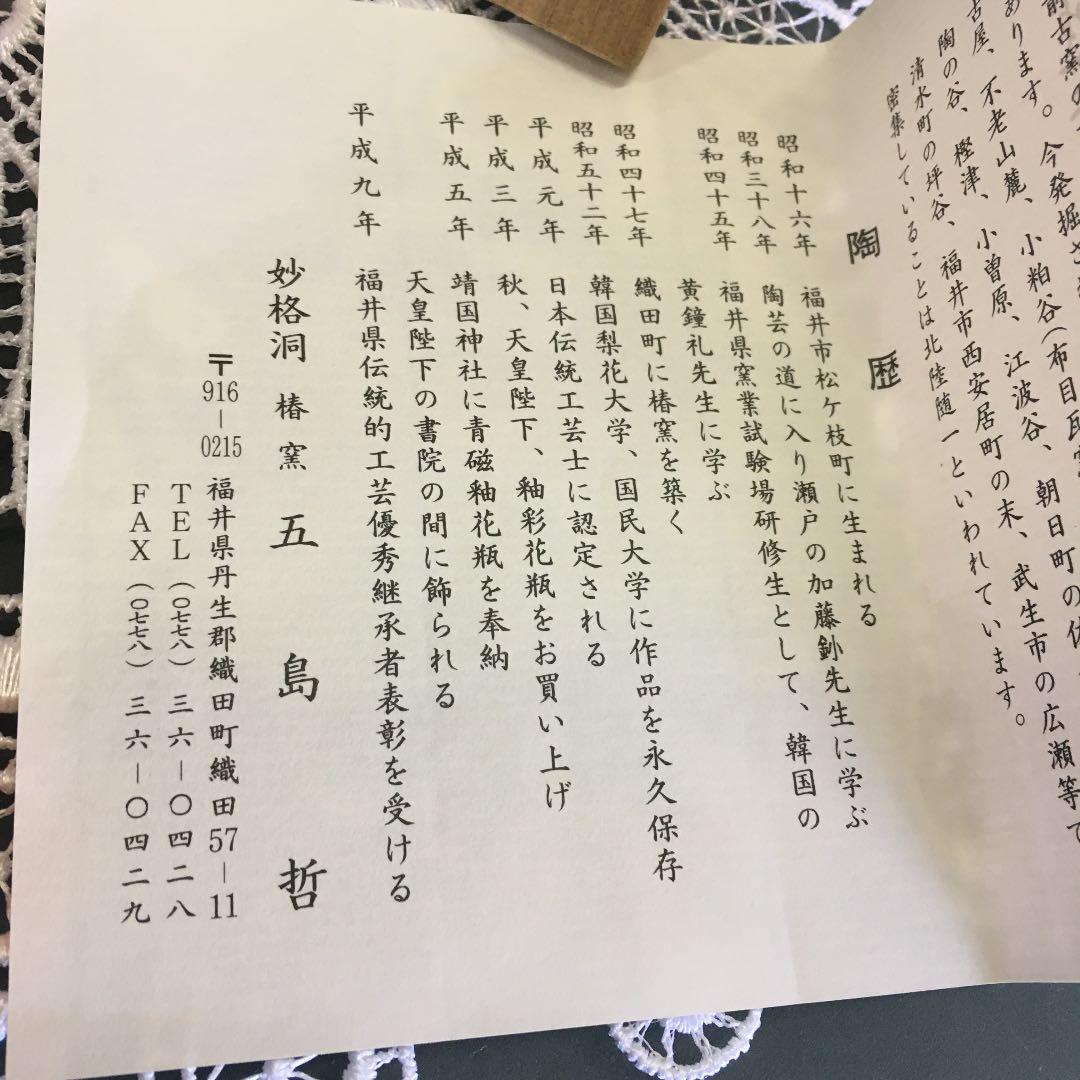 前古窯の
あります。今発掘さ
古屋、不老山麓、小粕谷(布目瓦窯
陶の谷、樫津、小曽原、江波谷、朝日町の佐
清水町の坪谷、福井市西安居町の末、武生市の広瀬等で
密集していることは北陸随一といわれています。
陶歴
昭和十六年 福井市松ケ枝町に生まれる
昭和三十八年 陶芸の道に入り瀬戸の加藤釥先生に学ぶ
昭和四十五年 福井県窯業試験場研修生として、韓国の
黄鐘礼先生に学ぶ
昭和四十七年 織田町に椿窯を築く
昭和五十二年 韓国梨花大学、国民大学に作品を永久保存
平成元年 日本伝統工芸士に認定される
平成三年 秋、天皇陛下、釉彩花瓶をお買い上げ
平成五年 靖国神社に青磁釉花瓶を奉納
天皇陛下の書院の間に飾られる
平成九年 福井県伝統的工芸優秀継承者表彰を受ける
妙格洞 椿窯 五島哲
〒916-0215 福井県丹生郡織田町織田57-11
TEL(〇七七八)三六-〇四二八
FAX(〇七七八)三六-〇四二九